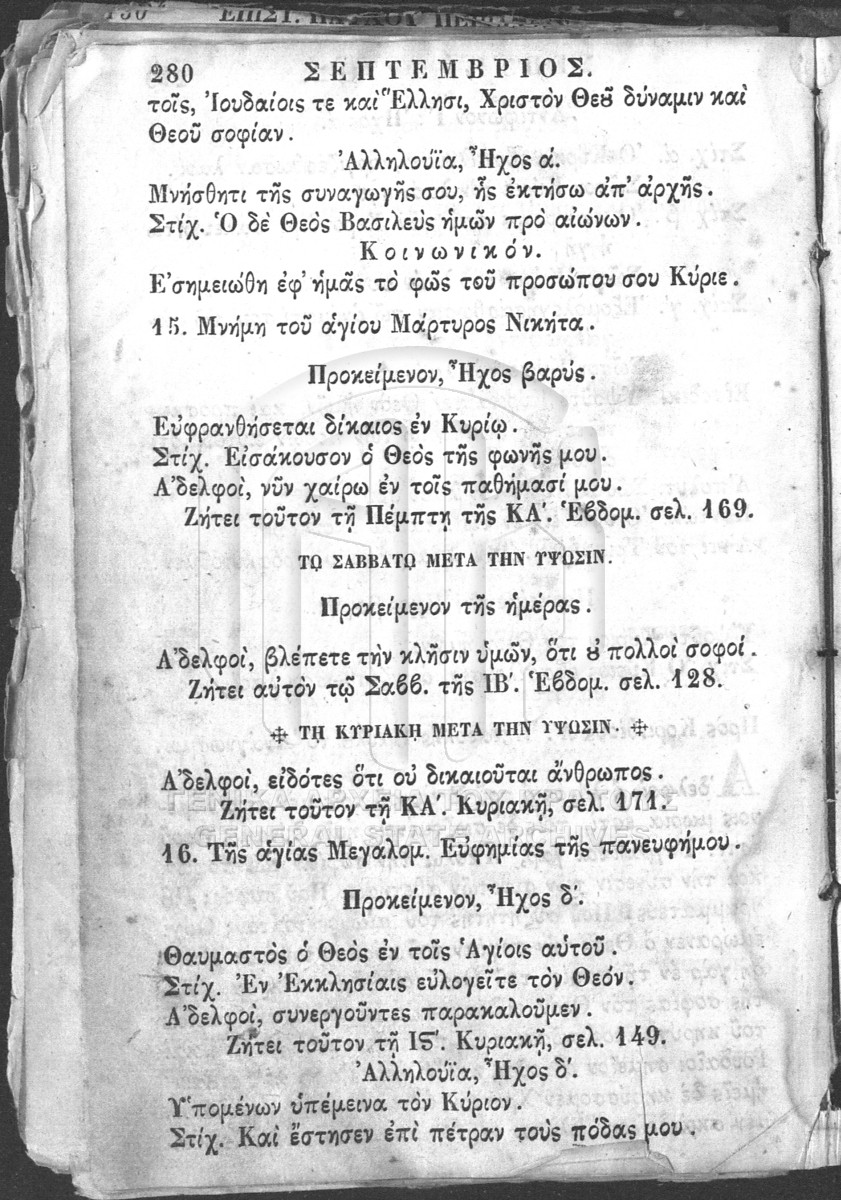 280 ΣΕΠΤΕΜΒΡΙΟΣ.
τοῖς, Ἰουδαίοις τε καὶ Ἕλλησι, Χριστὸν Θεȣ͂ δύναμιν καὶ
Θεοῦ σοφίαν.
Ἀλληλούϊα, Ἦχος ά.
Μνήσθητι τῆς συναγωγῆς σου, ἧς ἐκτήσω ἀπ' ἀρχῆς.
Στίχ. Ὁ δὲ Θεὸς Βασιλεὺς ἡμῶν πρὸ αἰώνων.
Κοινωνικόν.
Ἐσημειώθη ἐφ' ἡμᾶς τὸ φῶς τοῦ προσώπου σου Κύριε.
15. Μνήμη τοῦ ἁγίου Μάρτυρος Νικήτα.
Προκείμενον, Ἦχος βαρύς.
Εὐφρανθήσεται δίκαιος ἐν Κυρίῳ.
Στίχ. Εἰσάκουσον ὁ Θεὸς τῆς φωνῆς μου.
Ἀδελφοὶ, νῦν χαίρω ἐν τοῖς παθήμασί μου.
Ζήτει τοῦτον τῇ Πέμπτῃ τῆς ΚΑ'. Ἑβδομ. σελ. 169.
ΤΩ ΣΑΒΒΑΤΩ ΜΕΤΑ ΤΗΝ ΥΨΩΣΙΝ.
Προκείμενον τῆς ἡμέρας.
Ἀδελφοὶ, βλέπετε τὴν κλῆσιν ὑμῶν, ὅτι ȣ πολλοὶ σοφοί.
Ζήτει αὐτὸν τῷ Σαββ. τῆς ΙΒ'. Ἑβδομ. σελ. 128.
✢ ΤΗ ΚΥΡΙΑΚΗ ΜΕΤΑ ΤΗΝ ΥΨΩΣΙΝ. ✢
Ἀδελφοὶ, εἰδότες ὅτι οὐ δικαιοῦται ἄνθρωπος.
Ζήτει τοῦτον τῇ ΚΑ'. Κυριακῇ, σελ. 171.
ΓΕΝΙΚΑ ΑΡΧΕΙΑ ΤΟΥ ΚΡΑΤΟΥΣ
GENERAL STATE ARCHIVES
16. Τῆς ἁγίας Μεγαλομ. Εὐφημίας τῆς πανευφήμου.
Προκείμενον, Ἦχος δ'.
Θαυμαστὸς ὁ Θεὸς ἐν τοῖς Ἁγίοις αὑτοῦ.
Στίχ. Ἐν Ἐκκλησίαις εὐλογεῖτε τὸν Θεόν.
Ἀδελφοὶ, συνεργοῦντες παρακαλοῦμεν.
Ζήτει τοῦτον τῇ Ιϛ'. Κυριακῇ, σελ. 149.
Ἀλληλούϊα, Ἦχος δ'.
Ὑπομένων ὑπέμεινα τὸν Κύριον.
Στίχ. Καὶ ἔστησεν ἐπὶ πέτραν τοὺς πόδας μου.